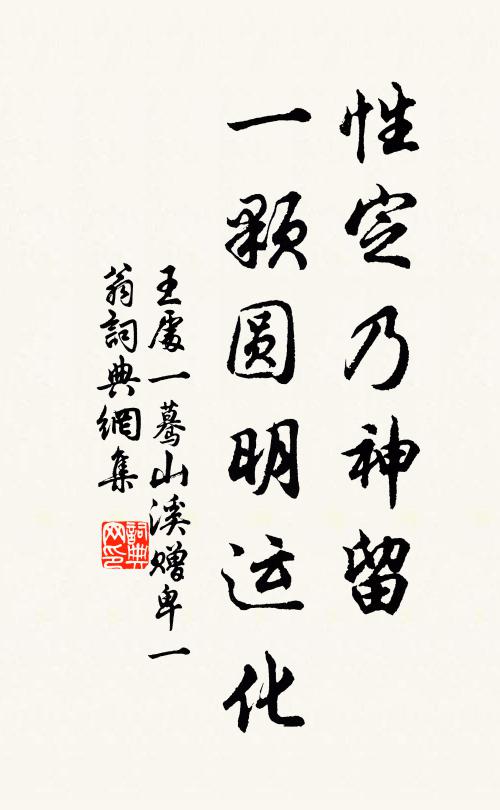 性定乃神留
一颗圆明运化
王處一驀山溪赠卑一
翁詞典網集
詞典
网印